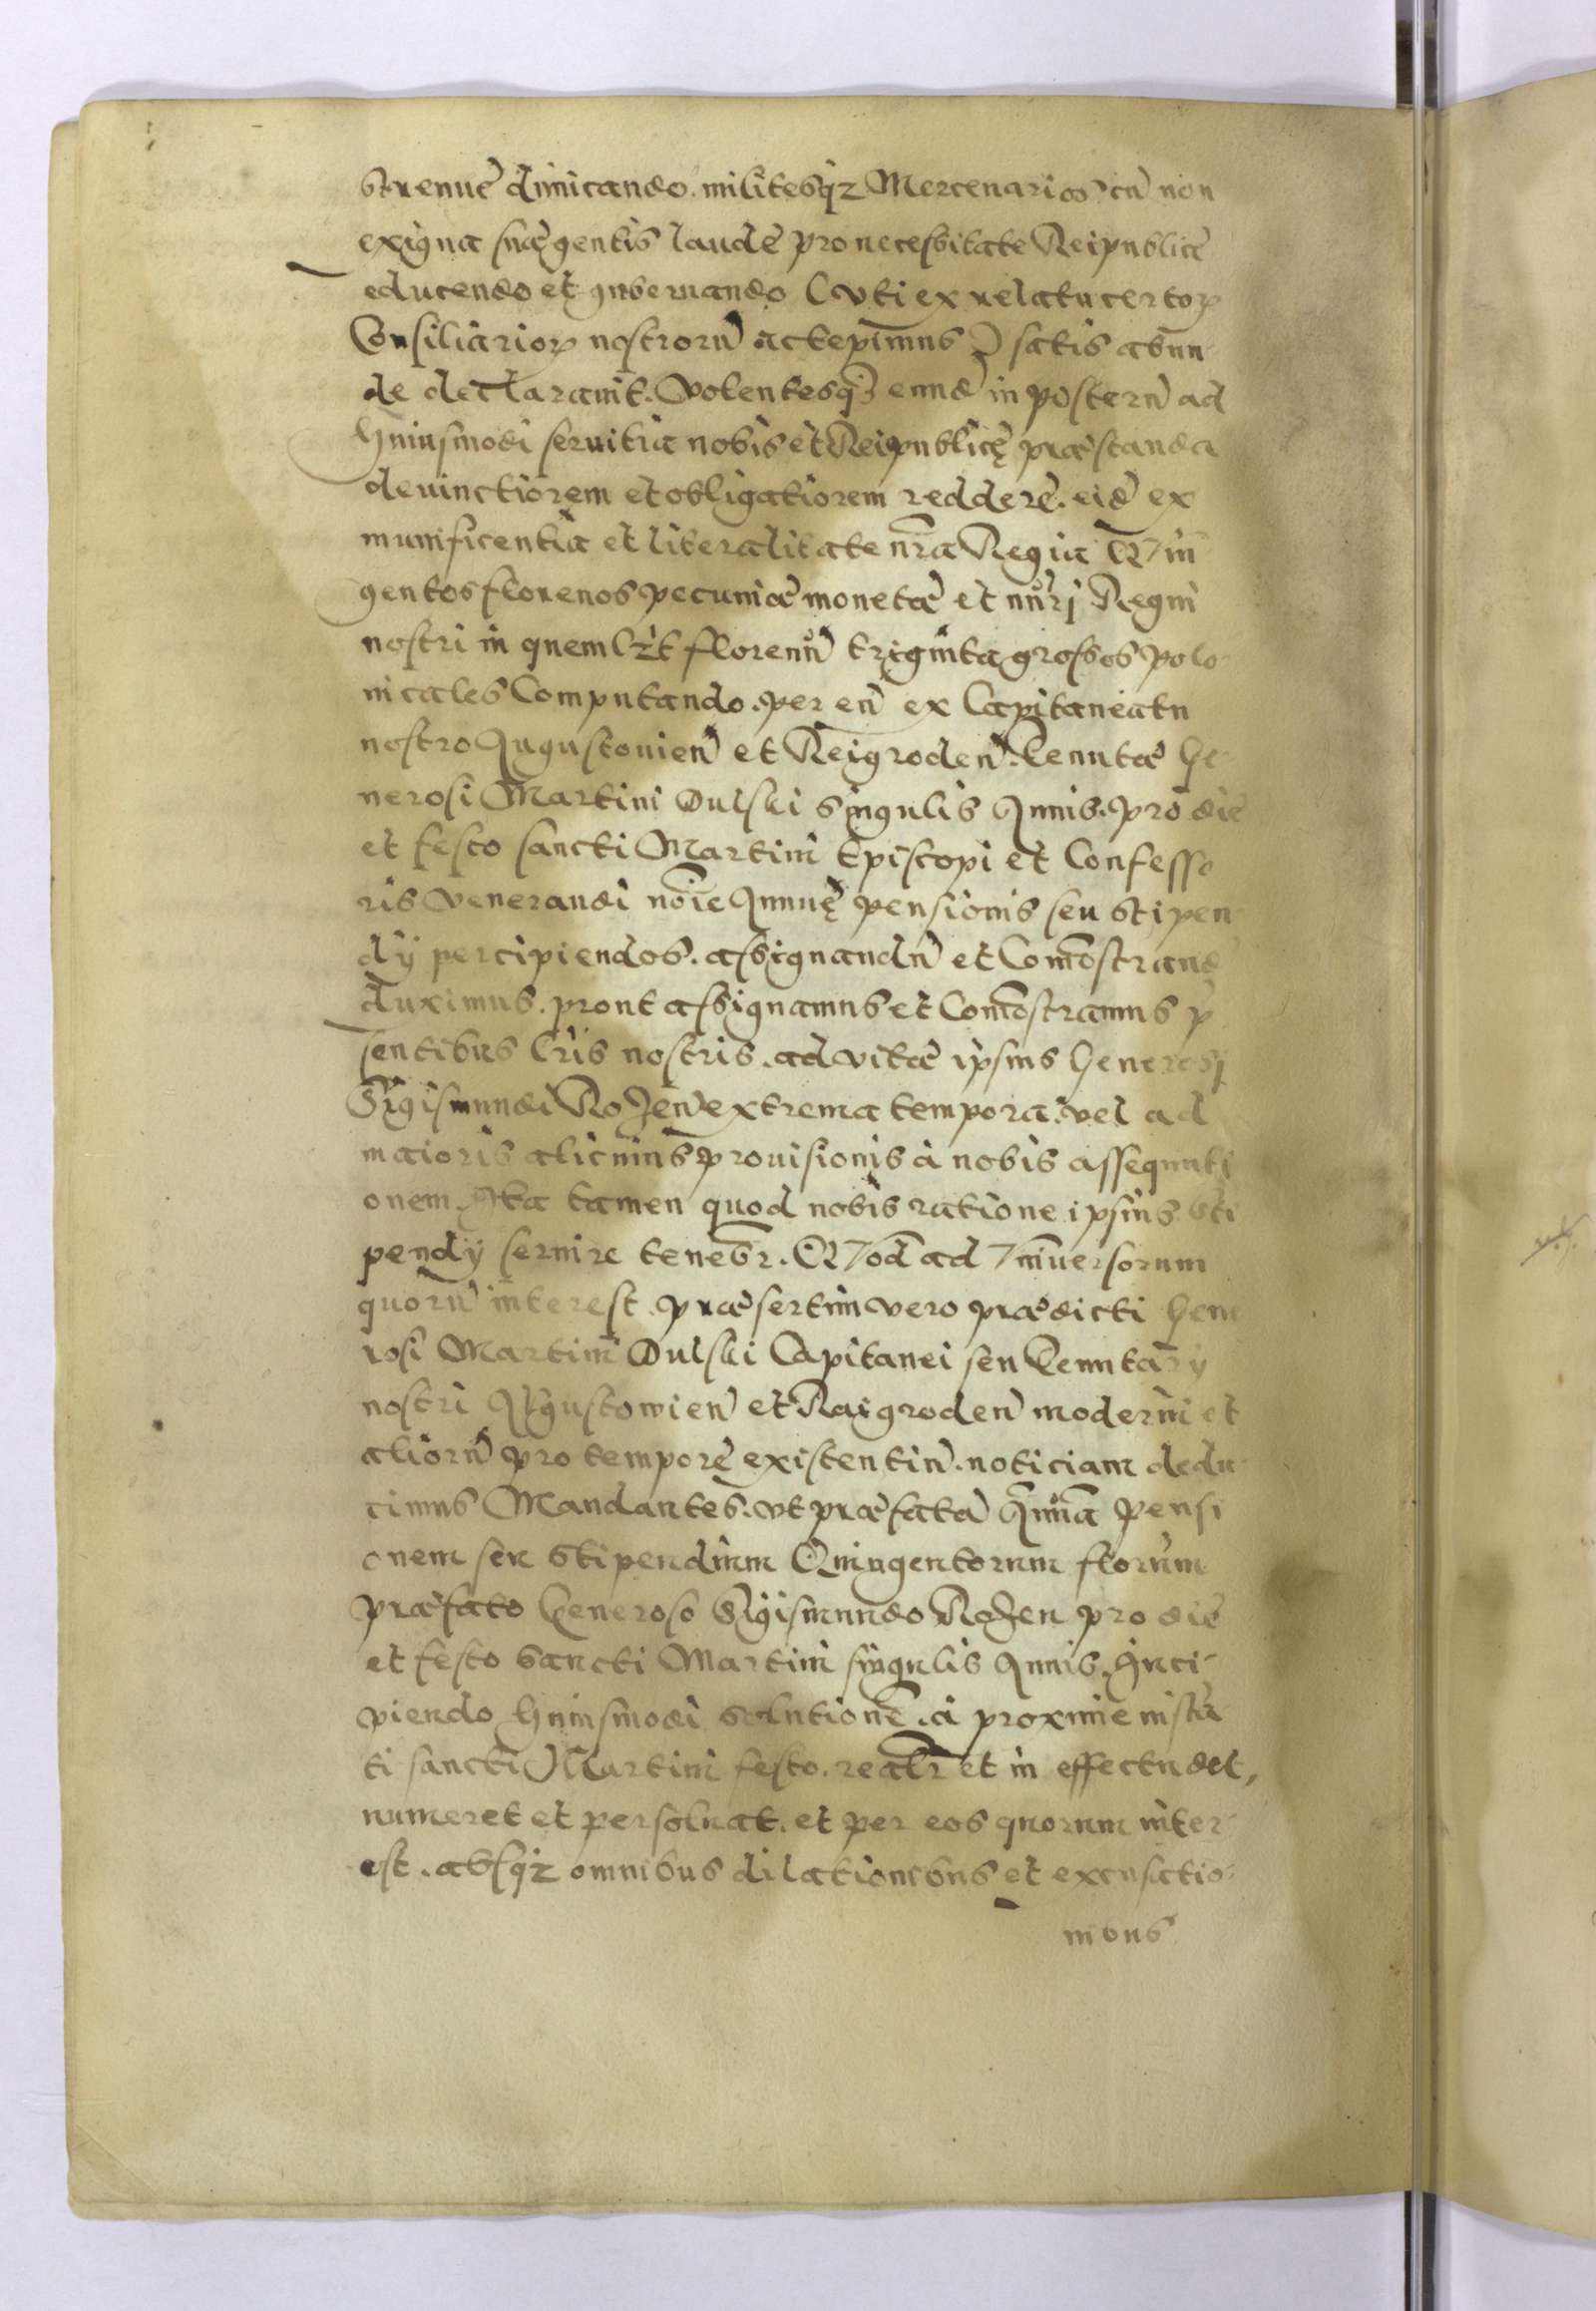 strenue dimicando. militesq3 Mercenarios cū non
exigua suæ gentis laudē pro necessitate Reipublicæ
educendo et gubernando (vti ex relatu certoꝝ
Consiliarioꝝ nostrorū accepimus) satis abun
de declarauit. Volentesq3 eund̄ in posterū ad
huiusmodi seruitia nobis et Reipublicę præstanda
deuinctiorem et obligatiorem reddere. eid̄ ex
munificentia et liberalitate nr̄a Regia Quin
gentos florenos pecuniæ monetæ et nūri Regni
nostri in quemlꝫt florenū triginta grossos Polo
nicales Computando. per eū ex Capitaneatu
nostro Augustouien̄ et Reigroden̄. Tenutæ Ge
nerosi Martini Dulski singulis Annis. pro die
et festo sancti Martini Episcopi et Confesso
ris Venerandi noīe Annuę pensionis seu stipen
dij percipiendos. assignandū et Com̄ostrand̄
duximus. prout assignamus et Com̄ostramus p̄
sentibus lr̄is nostris. ad vitæ ipsius Generosi
Sigismundi Rozen extrema tempora. vel ad
maioris alicuius prouisionis à nobis assequuti
onem. Ita tamen quod nobis ratione ipsius sti
pendij seruire tenebr̄. Quod ad Vniuersorum
quorū interest. præsertim vero prædicti Gene
rosi Martini Dulski Capitanei seu Tenutarij
nostri Augustowien̄ et Raigroden̄ moderni et
aliorū pro tempore existentiū. noticiam dedu
cimus Mandantes. vt præfatā Annuā pensi
onem seu stipendium Quingentorum florūm
præfato Generoso Sigismundo Rozen pro die
et festo sancti Martini singulis Annis. Inci-
piendo huiusmodi solutionē. à proxime insta
ti sancti Martini festo. realr̄ et in effectu det,
numeret et persoluat. et per eos quorum inter-
est. absq3 omnibus dilationibus et excusatio-
nibus